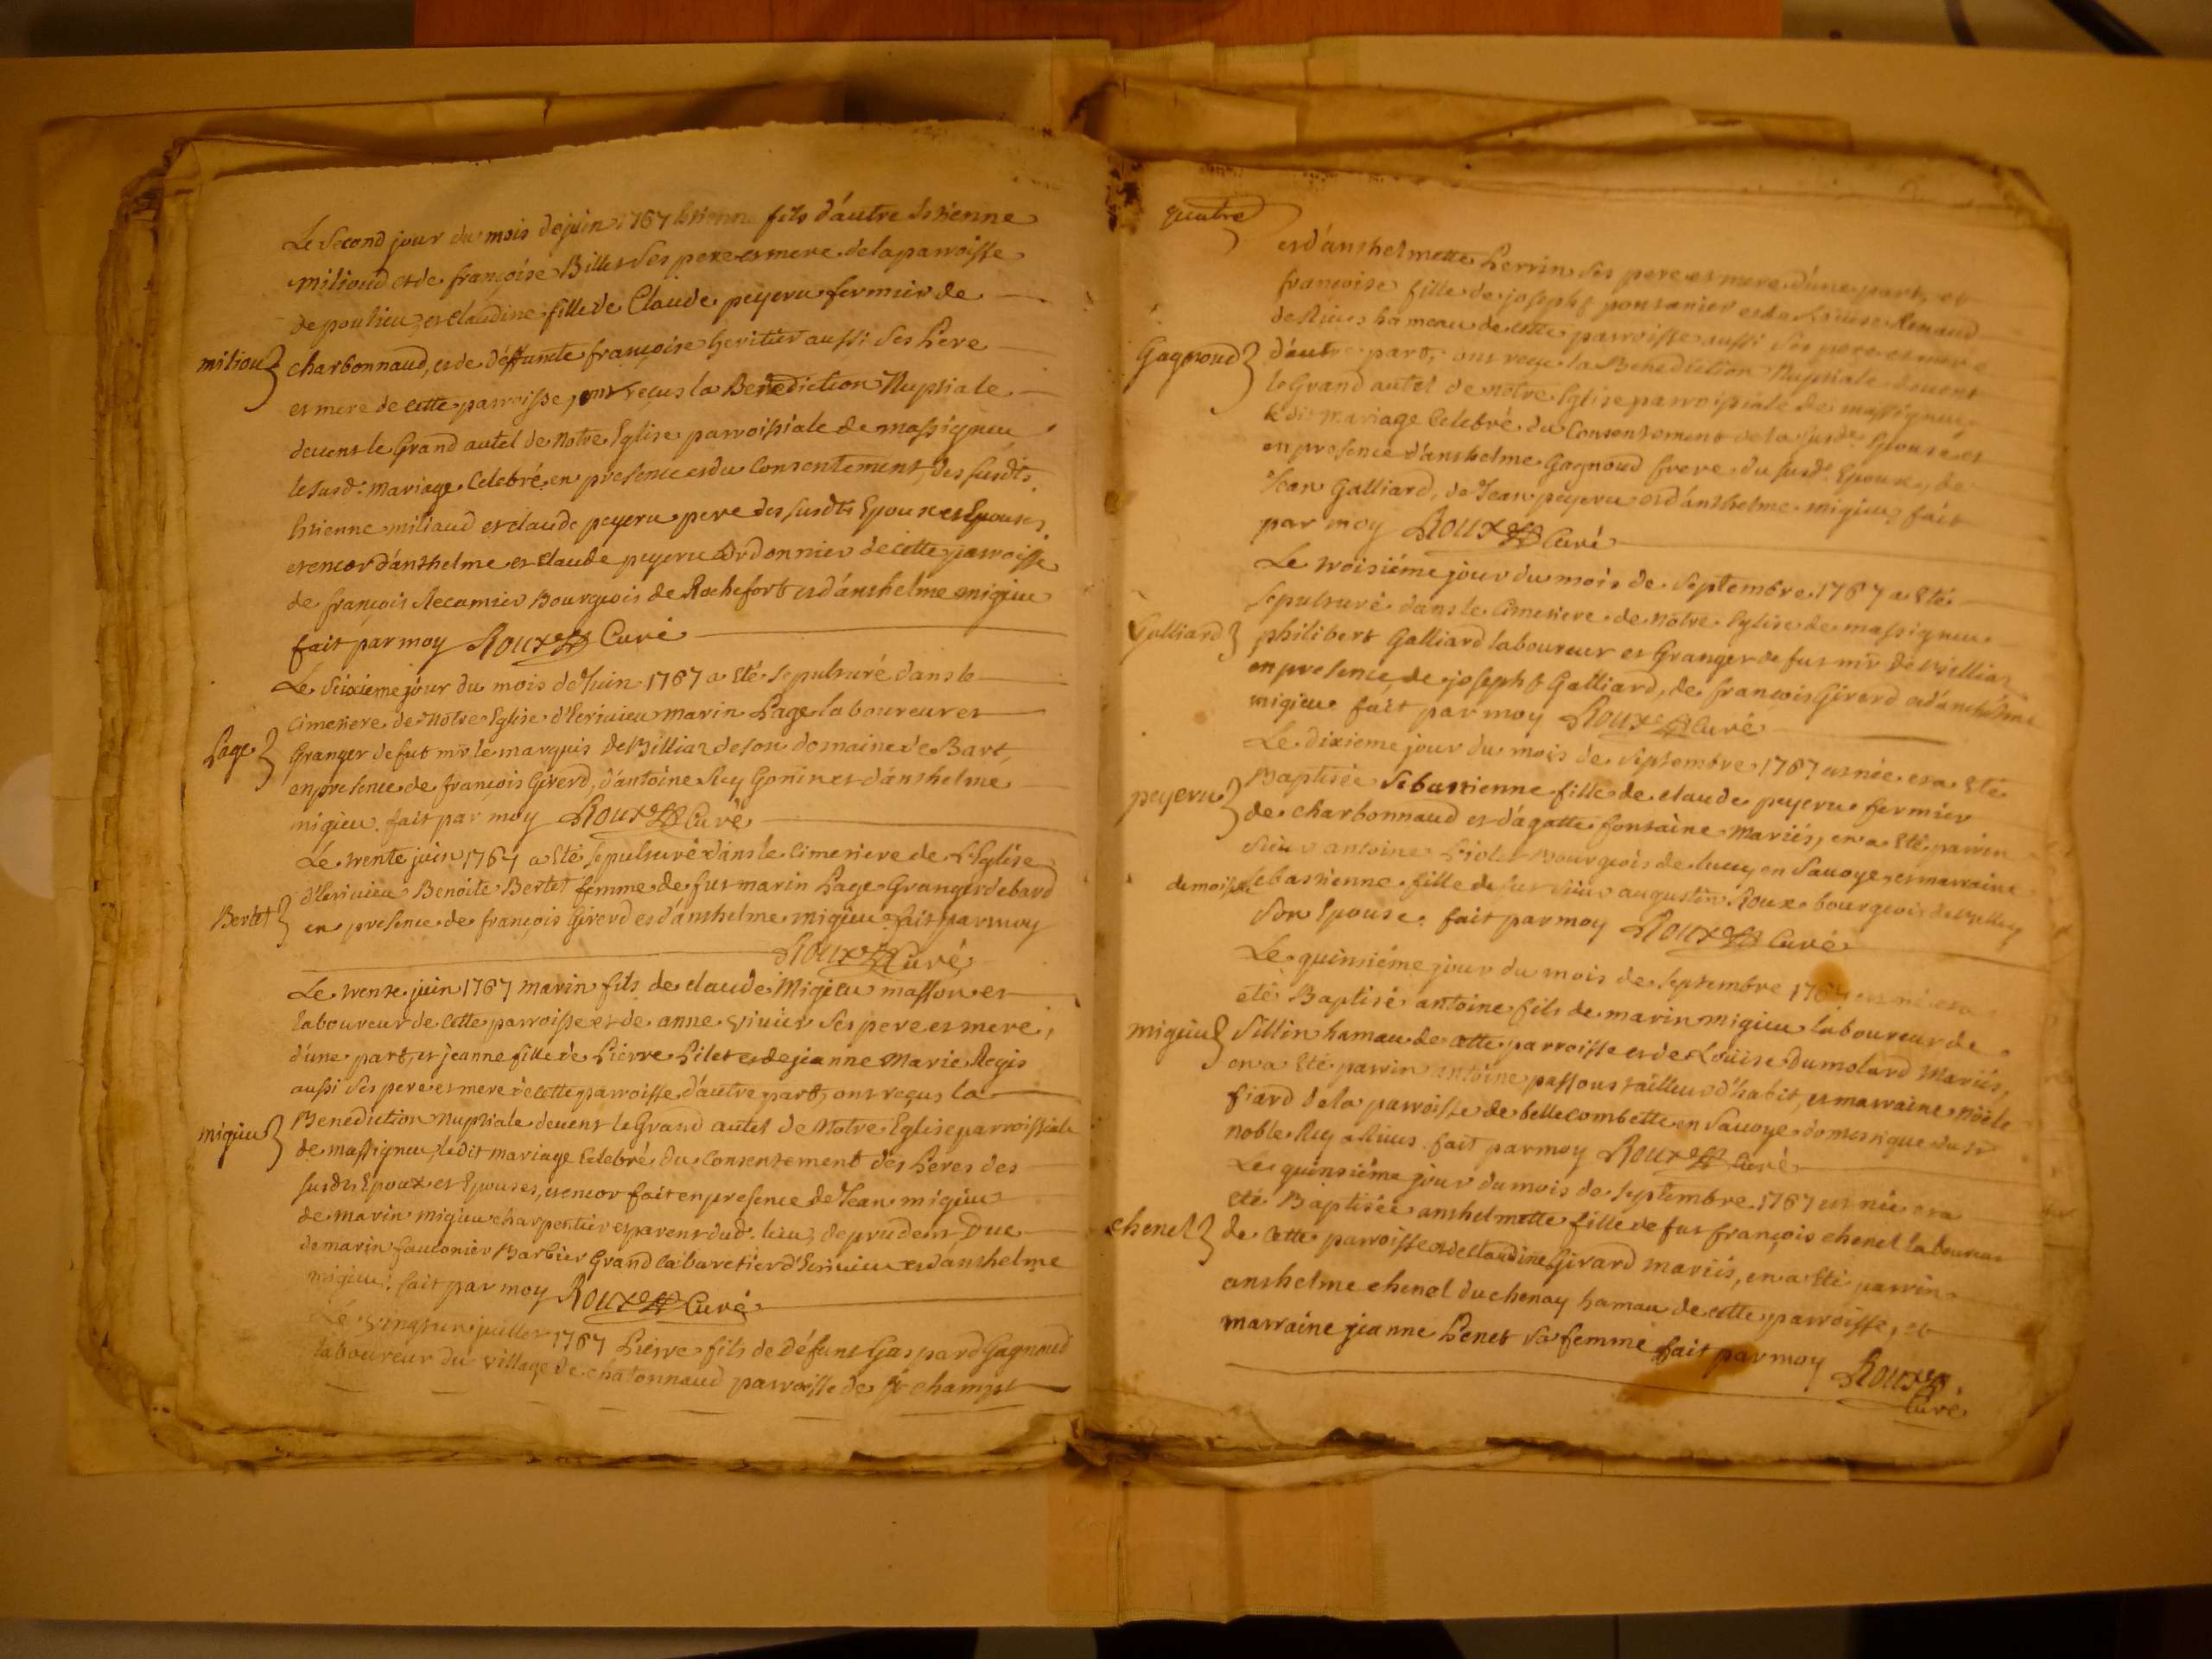 Le second jour du mois de juin 1767 Etienne fils d'autre Etienne
miliaud et de françoise Billet ses pere et mere de la parroisse
de poulieu, et claudine fille de Claude peyeru fermier de
miliou
charbonnaud, et de déffuncte françoise heritier aussi ses Pere
et mere de cette parroisse, ont reçus la Benediction Nuptiale
devent le Grand autel de Notre Eglise parroissiale de massigneu
le susd. mariage Celebré en presence et du Consentement des susdts
Etienne miliaud et claude peyeru pere des susdts Epoux et Epouses,
et encor d'anthelme et Claude peyeru Cordonnier de cette parroisse
de françois Recamier Bourgeois de Rochefort et d'anthelme migieu
fait par moy Roux Curé
Le Seixieme jour du mois de Juin 1767 a Eté sepulturé dans le
cimetiere de Notre Eglise d'Herivieu marin Page laboureur et
Page
Granger de fut mr le marquis de Billiaz de son domaine de Bart,
en presence de françois Girerd, d'antoine Rey Gonin et d'anthelme
migieu. fait par moy Roux Curé
Le trente juin 1767 a Eté sepulturé dans le cimetiere de L'Eglise
d'Herivieu Benoite Bertet femme de fut marin Page Granger de bard
Bertet
en presence de françois Girerd et d'anthelme migieu fait par moy
Roux Curé
Le trente juin 1767 marin fils de claude Migieu masson et
laboureur de cette parroisse et de anne vivier ses pere et mere,
d'une part, et jeanne fille de Pierre Pilet et de jeanne Marie Regis
aussi ses pere et mere de cette parroisse d'autre part, ont reçus la
migieu
Benediction nuptiale devent le Grand autel de Notre Eglise parroissiale
de massigneu, le dit mariage Celebré du consentement des Peres des
susdts Epoux et Epouses, et encor fait en presence de Jean migieu
de marin migieu charpentier et parent dud. lieu, de prudent Due
de marin fauconier Barbier Grand Cabaretier d'Herivieu et d'anthelme
migieu. fait par moy Roux Curé
Le vingt un juillet 1767 Pierre fils de Défunt Gaspard Gagnoud
laboureur du village de chatonnaud parroisse de st champt
quatre
et d'anthelmette Perrin ses pere et mere d'une part, et
françoise fille de joseph pontanier et de Louise Renaud
de Rives hameau de cette parroisse aussi ses pere et mere
Gagnoud
d'autre part, ont reçu la Benediction Nuptiale devent
le Grand autel de notre Eglise parroissiale de massigneu,
le dit mariage Celebré du Consentement de la susde Epouse et
en presence d'anthelme Gagnoud frere du susd. Epoux, de
Jean Galliard, de Jean peyeru et d'anthelme migieu, fait
par moy Roux Curé
Le troisiéme jour du mois de septembre 1767 a Eté
sepulturé dans le Cimetiere de notre Eglise de massigneu
Galliard
philibert Galliard laboureur et Granger de fut mr de
en presence de joseph Galliard, de françois Girerd et d'anthelme
migieu fait par moy Roux Curé
Le dixieme jour du mois de septembre 1767 est née et a Eté
Baptisée Sebastienne fille de claude peyeru fermier
peyeru
de charbonnaud et d'agatte fontaine Mariés, en a Eté parrin
sieur antoine Bourgeois de lucey en Savoye, et marraine
demoiselle
sebastienne fille de fut sieur augustin Roux bourgeois de
son Epouse. fait par moy Roux Curé
Le quinsiéme jour du mois de septembre 1767 est né et a
eté Baptisé antoine fils de marin migieu laboureur de
migieu
Sillin hamau de cette parroisse et de Louise Dumolard Mariés,
en a Eté parrin antoine passout tailleur d'habit, et marraine Noële
fiard de la parroisse de bellecombette en Savoye domestique du sr
noble Rey a Rives. fait par moy Roux Curé
Le quinsiéme jour du mois de septembre 1767 est née et a
eté Baptisée anthelmette fille de fut françois chenel laboureur
chenel
de cette parroisse et de Claudine Girard mariés, en a Eté parrin
anthelme chenel du chenay hamau de cette parroisse, et
marraine jeanne Penet sa femme fait par moy Roux
Curé